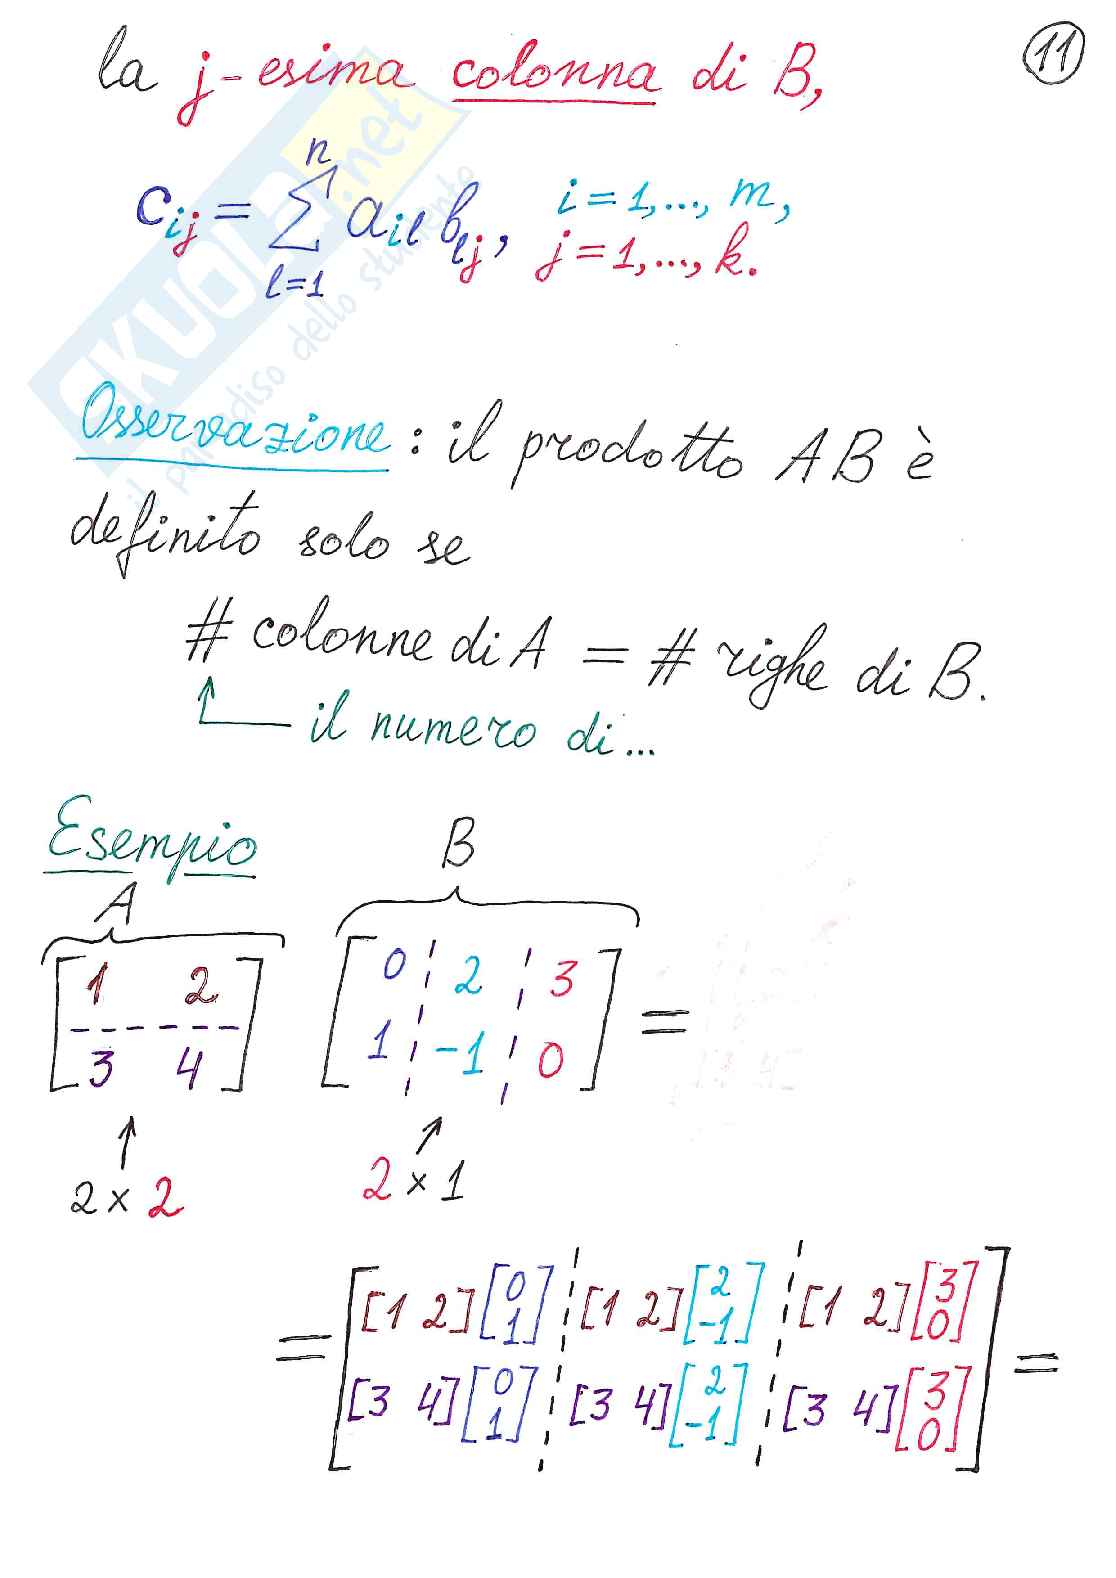 la j-esima colonna di B,
11
c_ij = Σ_{l=1}^{n} a_il b_lj, i = 1, ..., m,
j = 1, ..., k.
SKUOLA.net
il paradiso dello studente
Osservazione: il prodotto AB è
definito solo se
# colonne di A = # righe di B.
il numero di...
Esempio
A B
[1 2 [0 2 3
3 4] 1 -1 0] =
2 × 2 2 × 1
= [[1 2][0 1] [1 2][2 -1] [1 2][3 0]
[3 4][0 1] [3 4][2 -1] [3 4][3 0]] =